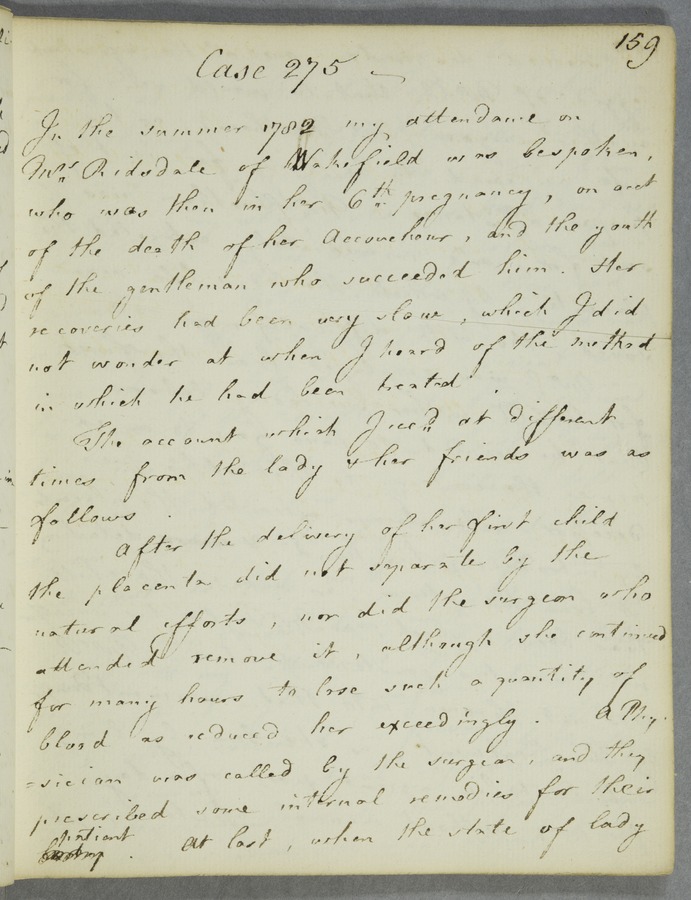 159
Case 275
In the summer 1782 my attendance on
Mrs Ridsdale of Wakefield was bespoken,
who was then in her 6th pregnancy, on acct
of the death of her Accoucheur, and the youth
of the gentleman who succeeded him. Her
recoveries had been very slow, which I did
not wonder at when I heard of the method
in which he had been treated.
The account which I recd at different
times from the lady & her friends was as
follows.
After the delivery of her first child
the placenta did not separate by the
natural efforts, nor did the surgeon who
attended remove it, although she continued
for many hours to lose such a quantity of
blood as reduced her exceedingly. A Phy-
=sician was called by the surgeon, and they
prescribed some internal remedies for their
patient. At last, when the state of lady